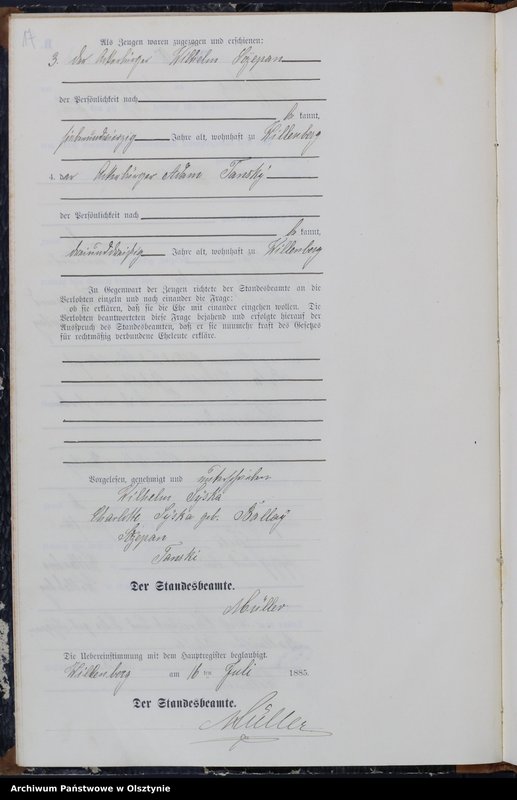 Als Zeugen waren zugezogen und erschienen:
3. der Ackerbürger Wilhelm Szepan
der Persönlichkeit nach
kannt,
siebenundvierzig Jahre alt, wohnhaft zu Willenberg
4. der Ackerbürger Adam Tansky
der Persönlichkeit nach
kannt,
dreiunddreißig Jahre alt, wohnhaft zu Willenberg
In Gegenwart der Zeugen richtete der Standesbeamte an die
Verlobten einzeln und nach einander die Frage:
ob sie erklären, daß sie die Ehe mit einander eingehen wollen. Die
Verlobten beantworteten diese Frage bejahend und erfolgte hierauf der
Ausspruch des Standesbeamten, daß er sie nunmehr kraft des Gesetzes
für rechtmäßig verbundene Eheleute erkläre.
Vorgelesen, genehmigt und unterschrieben
Wilhelm Syska
Charlotte Syska geb. Ballay
Szepan
Tanski
Der Standesbeamte.
Müller
Die Uebereinstimmung mit dem Hauptregister beglaubigt.
Willenberg am 16 ten Juli 1885.
Der Standesbeamte.
Müller
Archiwum Państwowe w Olsztynie